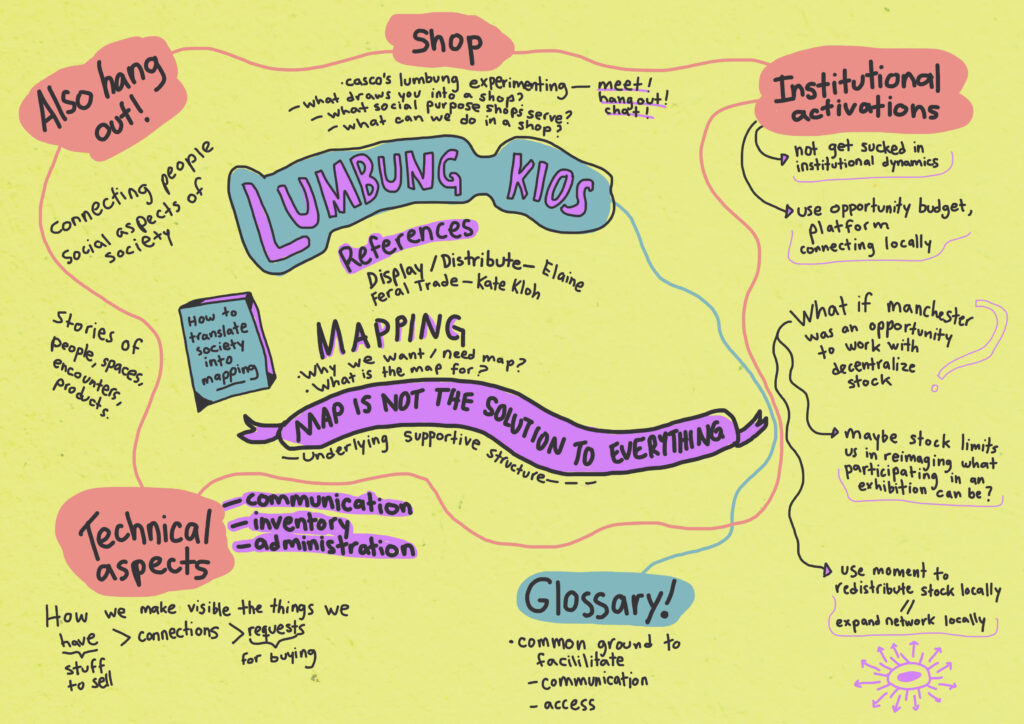 Shop
· casco's lumbung experimenting — meet!
hang out!
chat!
- what draws you into a shop?
- what social purpose shops serve?
- what can we do in a shop?
Also hang
out!
Connecting people
social aspects of
society
Stories of
people, spaces,
encounters,
products.
LUMBUNG KIOS
References
Display / Distribute - Elaine
Feral Trade - Kate Kloh
How to
translate
society
into
mapping
MAPPING
· Why we want / need map?
· What is the map for?
MAP IS NOT THE SOLUTION TO EVERYTHING
- Underlying supportive structure - - - -
Technical
aspects
- communication
- inventory
- administration
How we make visible the things we
have > connections > requests
stuff
to sell
for buying
Glossary!
· common ground to
facililitate
- communication
- access
Institutional
activations
not get sucked in
institutional dynamics
use opportunity budget,
platform
connecting locally
What if manchester
was an opportunity
to work with
decentralize
stock
?
maybe stock limits
us in reimaging what
participating in an
exhibition can be?
use moment to
redistribute stock locally
//
expand network locally